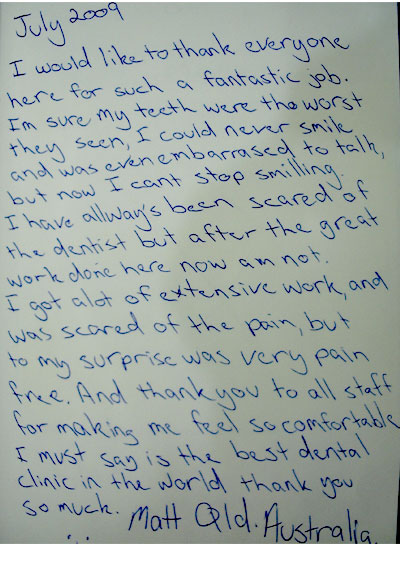 July 2009
I would like to thank everyone
here for such a fantastic job.
Im sure my teeth were the worst
they seen, I could never smile
and was even embarrased to talk,
but now I cant stop smilling.
I have allway's been scared of
the dentist but after the great
work done here now am not.
I got alot of extensive work, and
was scared of the pain, but
to my surprise was very pain
free. And thankyou to all staff
for making me feel so comfortable
I must say is the best dental
clinic in the world thank you
so much. Matt Qld. Australia.